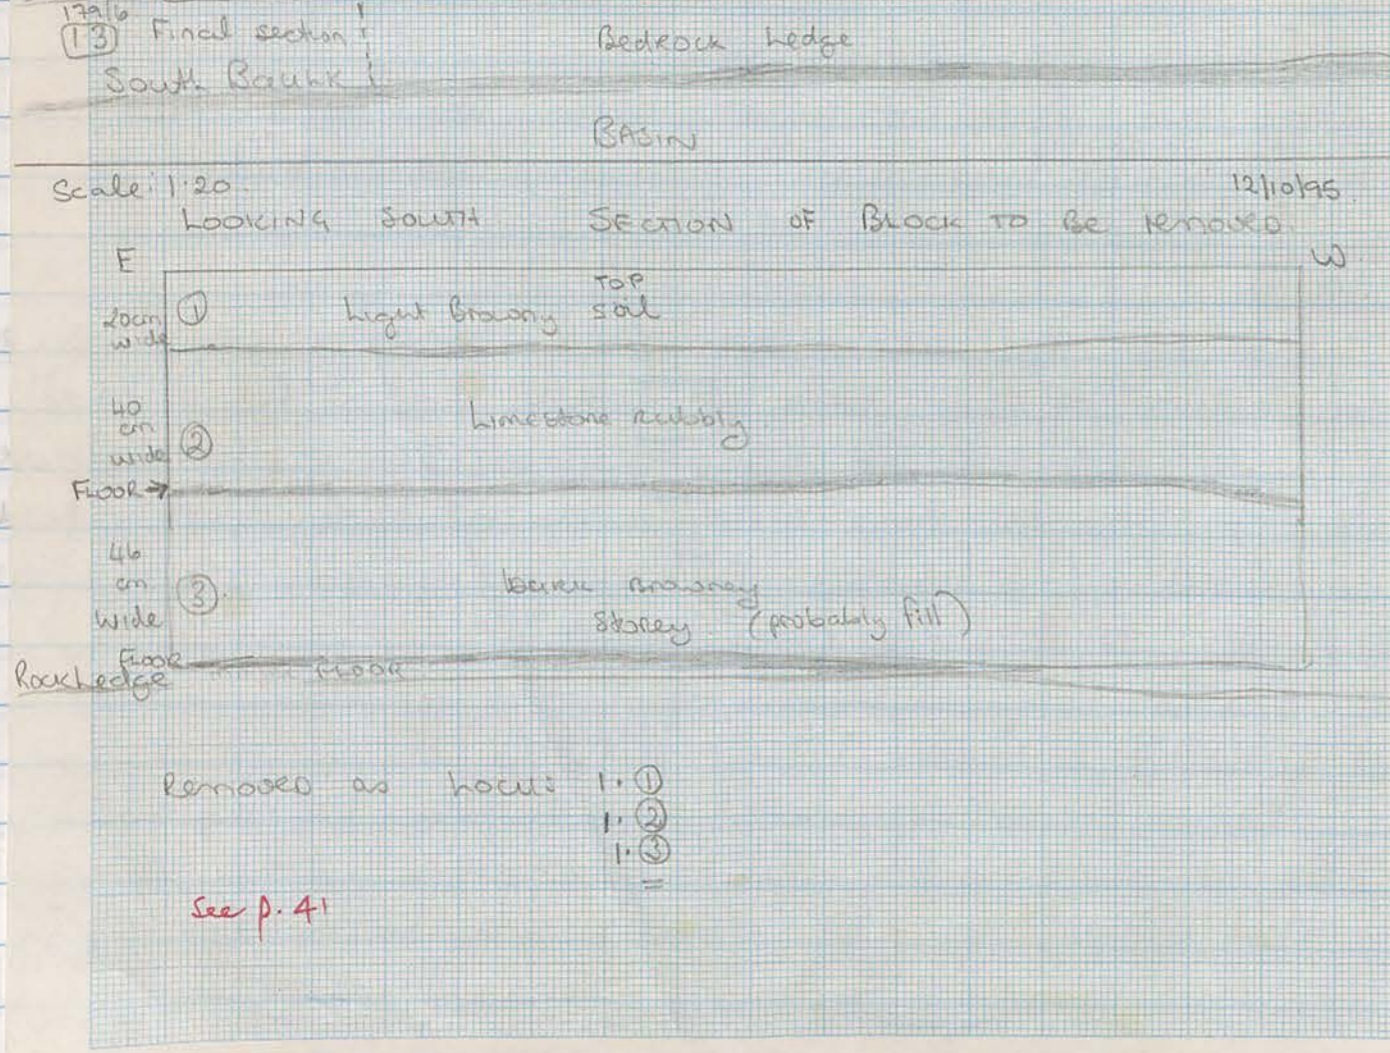 179/6
13 Final section Bedrock Ledge
South Baulk
BASIN
Scale: 1:20. 12/10/95
LOOKING SOUTH SECTION OF BLOCK TO BE removed.
E W
TOP
20cm wide ① Light Browny soil
40 cm wide ② Limestone Rubbly
FLOOR →
46 cm wide ③ Dark Browney
Stoney (probably fill)
FLOOR FLOOR
Rock Ledge
Removed as Locus 1.①
1.②
1.③
=
See p. 41